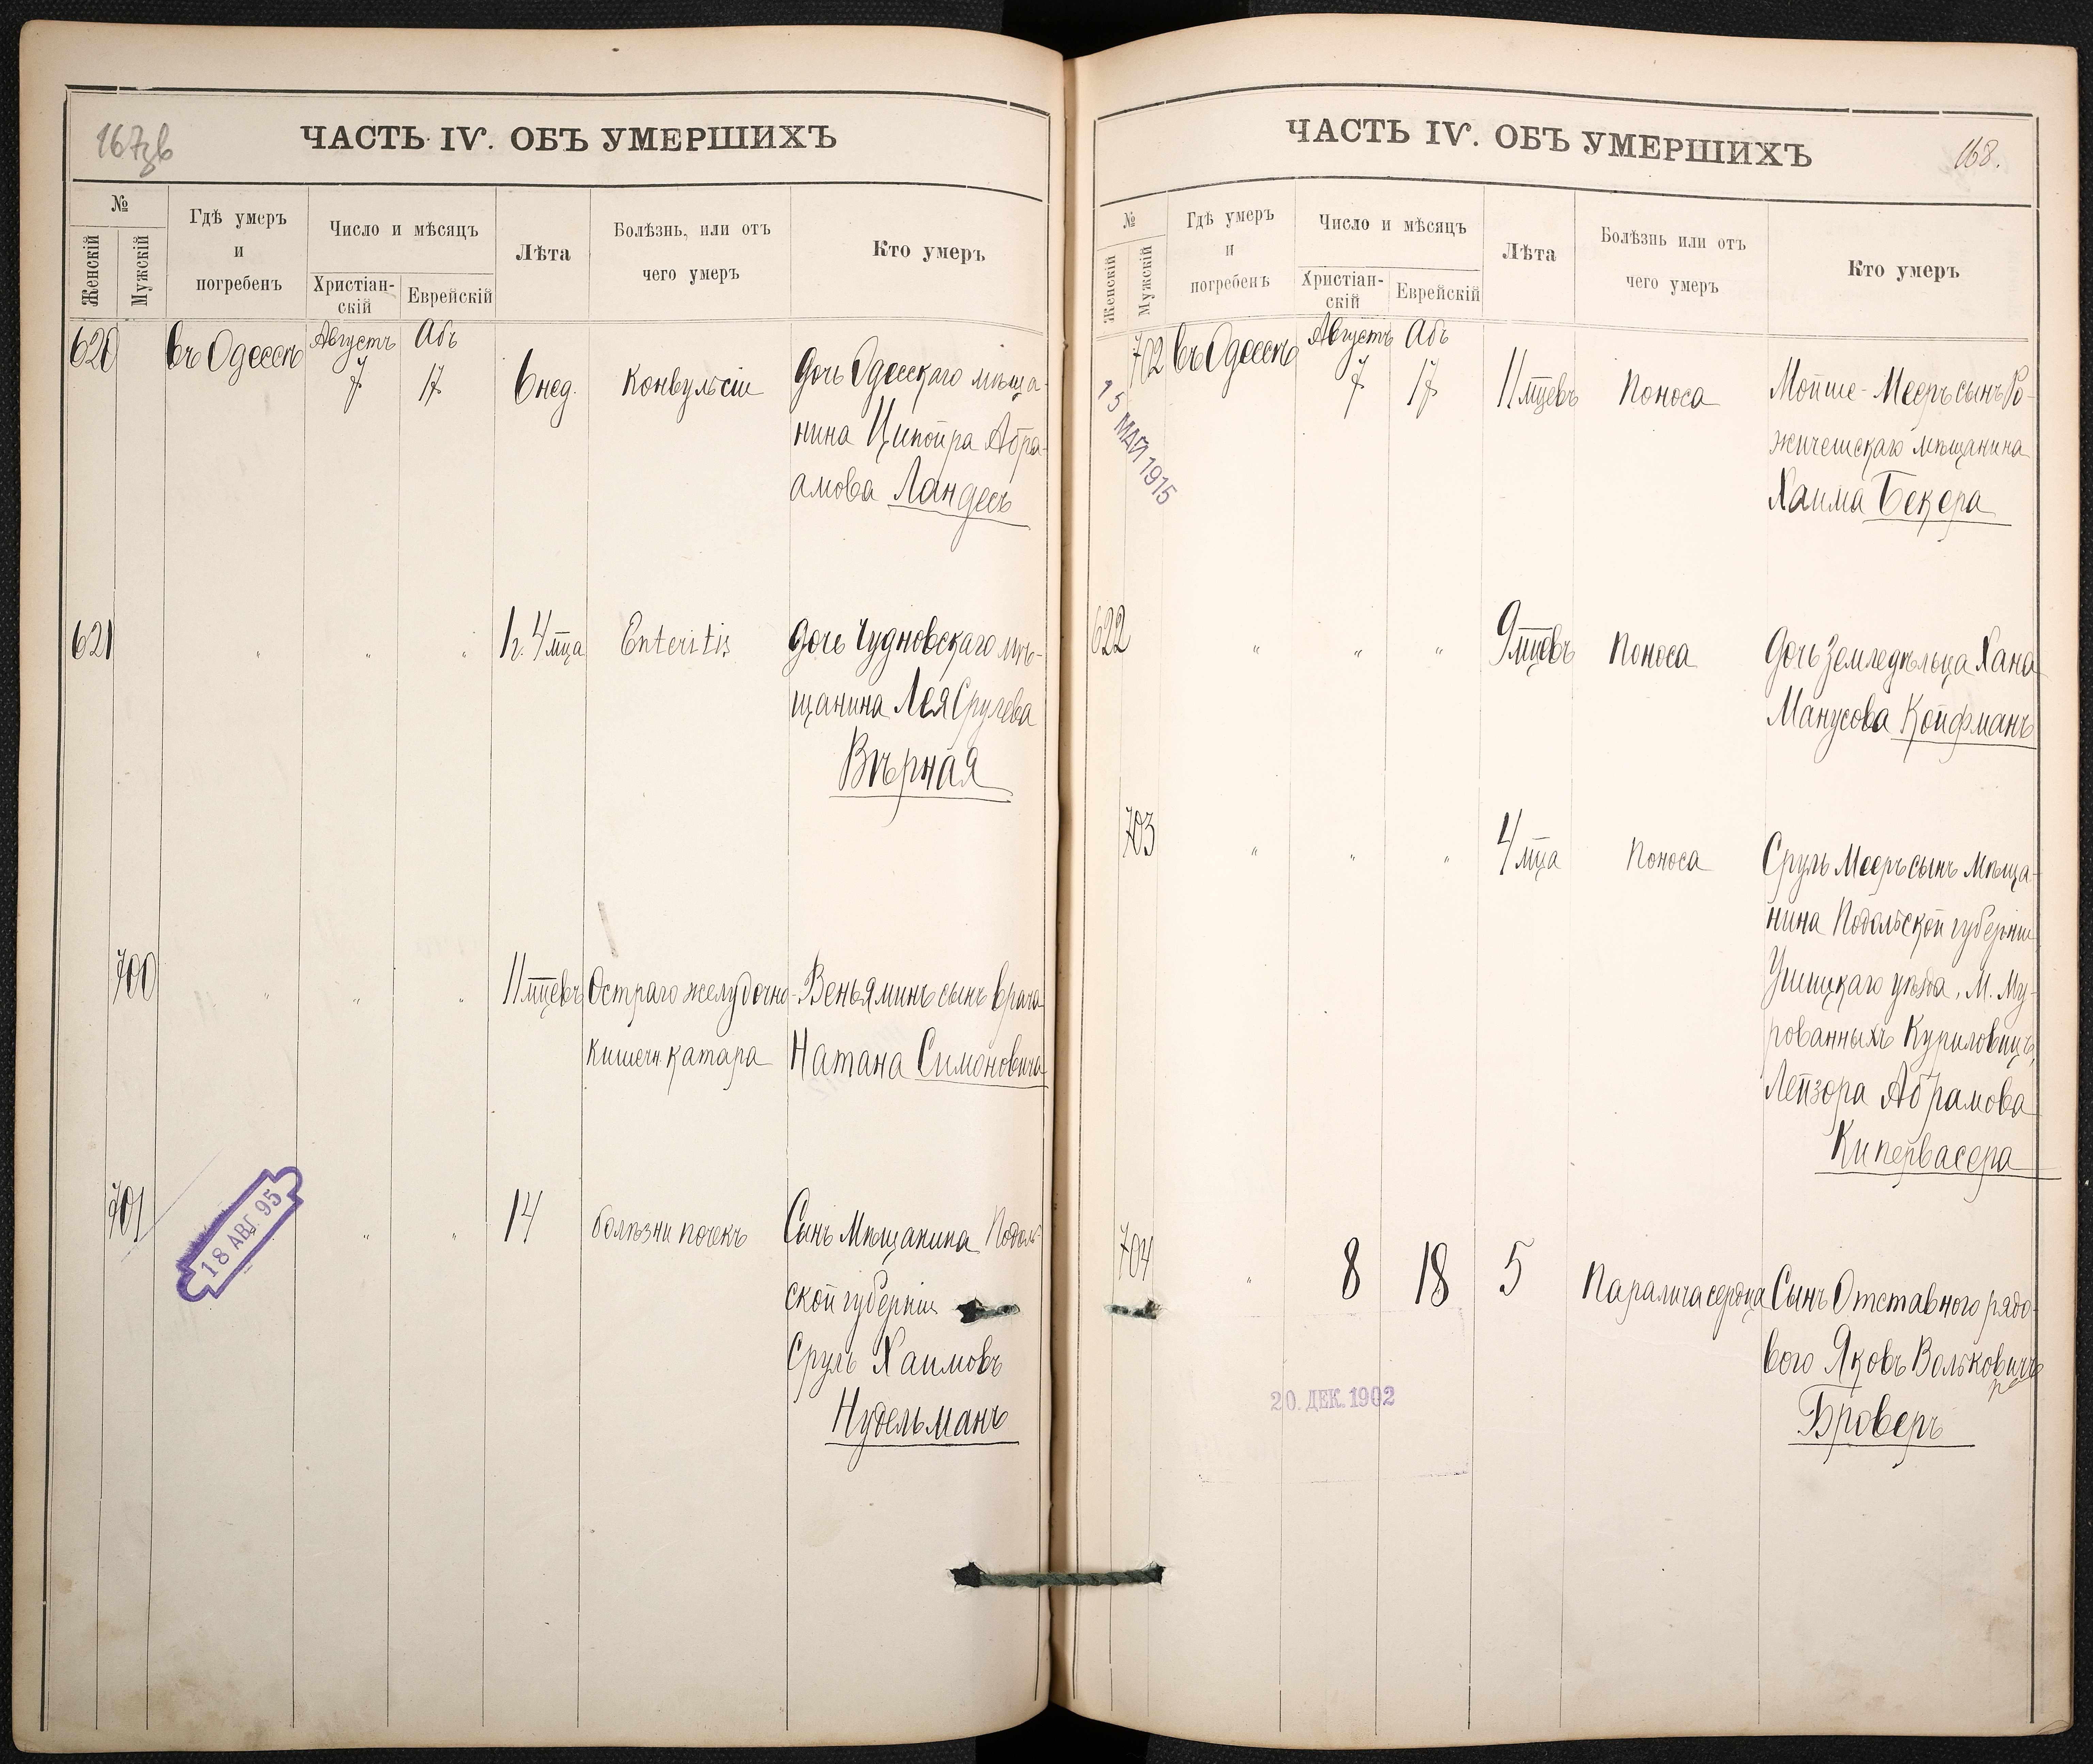 167зв
ЧАСТЬ IV. ОБЪ УМЕРШИХЪ
№
Женскій
Мужскій
Гдѣ умеръ
и
погребенъ
Число и мѣсяцъ
Христіан-
скій
Еврейскій
Лѣта
Болѣзнь, или отъ
чего умеръ
Кто умеръ
620 въ Одессѣ Августъ 7 Абъ 17 6 нед. Конвульсіи Дочь Одесскаго мѣща-
нина Ципойра Абра-
амова Ландесъ
621 " " " 1 г. 4 мца Enteritis Дочь Чудновскаго мѣ-
щанина Лея Срулева
Вѣрная
700 " " " 11 мцевъ Остраго желудочно- Веньяминъ сынъ врача
Кишечн. катара Натана Симоновича
701 " " 14 болѣзни почекъ Сынъ Мѣщанина Подоль-
ской губерніи
Сруль Хаимовъ
Нудельманъ
18 АВГ. 95
ЧАСТЬ IV. ОБЪ УМЕРШИХЪ
168.
№
Женскій
Мужскій
Гдѣ умеръ
и
погребенъ
Число и мѣсяцъ
Христіан-
скій
Еврейскій
Лѣта
Болѣзнь или отъ
чего умеръ
Кто умеръ
702 въ Одессѣ Августъ 7 Абъ 17 11 мцевъ Поноса Мойше-Мееръ сынъ Ро-
жичешскаго мѣщанина
Хаима Бекера
15 МАЙ 1915
622 " " " 9 мцевъ Поноса Дочь Земледѣльца Хана
Манусова Койфманъ
703 " " " 4 мца Поноса Сруль Мееръ сынъ Мѣща-
нина Подольской губерніи
Ушицкаго уѣзда, М. Му-
рованныхъ Куриловицъ,
Лейзора Абрамова
Кипервасера
704 " 8 18 5 Паралича сердца Сынъ Отставного рядо-
вого Яковъ Вольковичъ
Броверъ
20. ДЕК. 1902